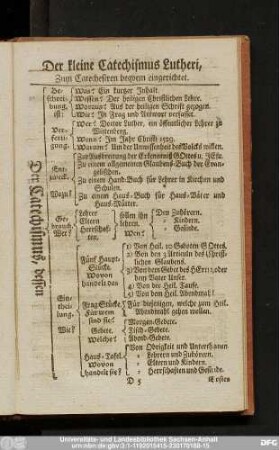 Der kleine Catechismus Lutheri,
Zum Catechesiren beqvem eingerichtet.
Was? Ein kurtzer Jnhalt.
Wessen? Der heiligen Christlichen Lehre.
Woraus? Aus der heiligen Schrift gezogen.
Wie? Jn Frag und Antwort verfasset.
Wer? Doctor Luther, ein öffentlicher Lehrer zu
Wittenberg.
Wenn? Jm Jahr Christi 1529.
Warum? Um der Unwissenheit des Volcks willen.
Zur Ausbreitung der Erkenntniß GOttes u. JEsu.
Zu einem allgemeinen Glaubens-Buch der Evan-
gelischen.
Zu einem Hand-Buch für Lehrer in Kirchen und
Schulen.
Zu einem Haus-Buch für Haus-Väter und
Haus-Mütter.
Lehrer
Eltern
Herrschaf-
ten.
sollen ihn
lehren.
Den Zuhörern.
Kindern.
Gesinde.
Fünf Haupt-
Stücke.
Wovon
handeln
sie?
1) Von Heil. 10 Geboten GOttes.
2) Von den 3 Articeln des Christ-
lichen Glaubens.
3) Von dem Gebet des HErrn, oder
dem Vater Unser.
4) Von der Heil. Taufe.
5) Von dem Heil. Abendmahl?
Frag-Stücke.
Für wem
sind sie?
Für diejenigen, welche zum Heil.
Abendmahl gehen wollen.
Gebete.
Welche?
Morgen-Gebete.
Tisch-Gebete.
Abend-Gebete.
Haus-Tafel.
Wovon
handelt sie?
Von Obrigkeit und Unterthanen
Lehrern und Zuhörern.
Eltern und Kindern.
Herrschaften und Gesinde.
D 5
Universitäts- und Landesbibliothek Sachsen-Anhalt